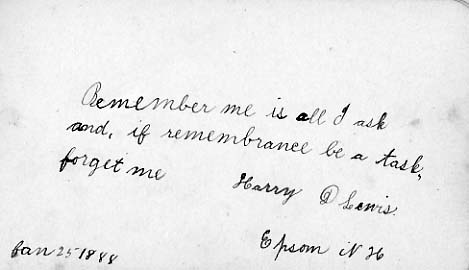 Remember me is all I ask
and, if remembrance be a task,
forget me
Harry D Lewis.
Epsom N H
Jan 25 1888